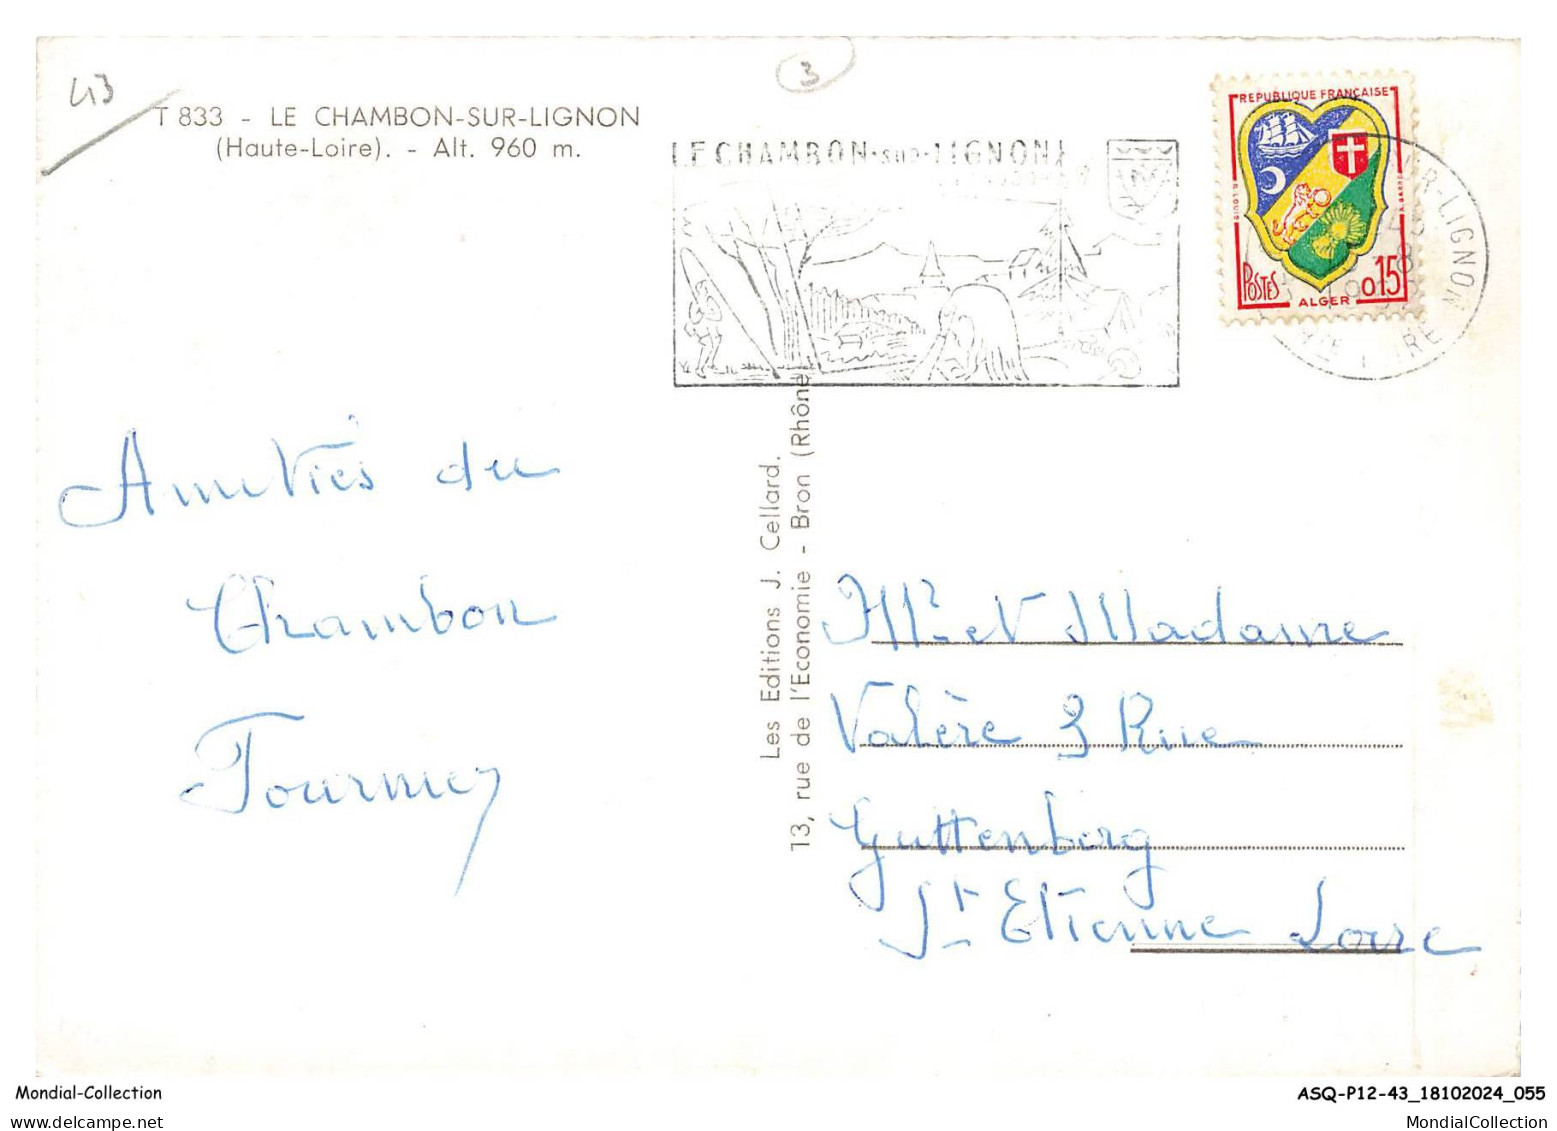 43
3
T 833 - LE CHAMBON-SUR-LIGNON
(Haute-Loire). - Alt. 960 m.
LE CHAMBON-sur-LIGNON
REPUBLIQUE FRANÇAISE
POSTES
ALGER
0,15
R-LIGNON
HTE LOIRE
Amitiés du
Chambon
Fournier
Les Editions J. Cellard.
13, rue de l'Economie - Bron (Rhône
Mr et Madame
Valère 3 Rue
Guttenberg
St Etienne Loire
Mondial-Collection
ASQ-P12-43_18102024_055
MondialCollection